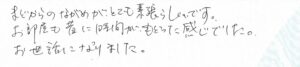 まどからのながめがとても素晴らしいです。
お部屋も昔に時間がもどった感じでした。
お世話になりました。